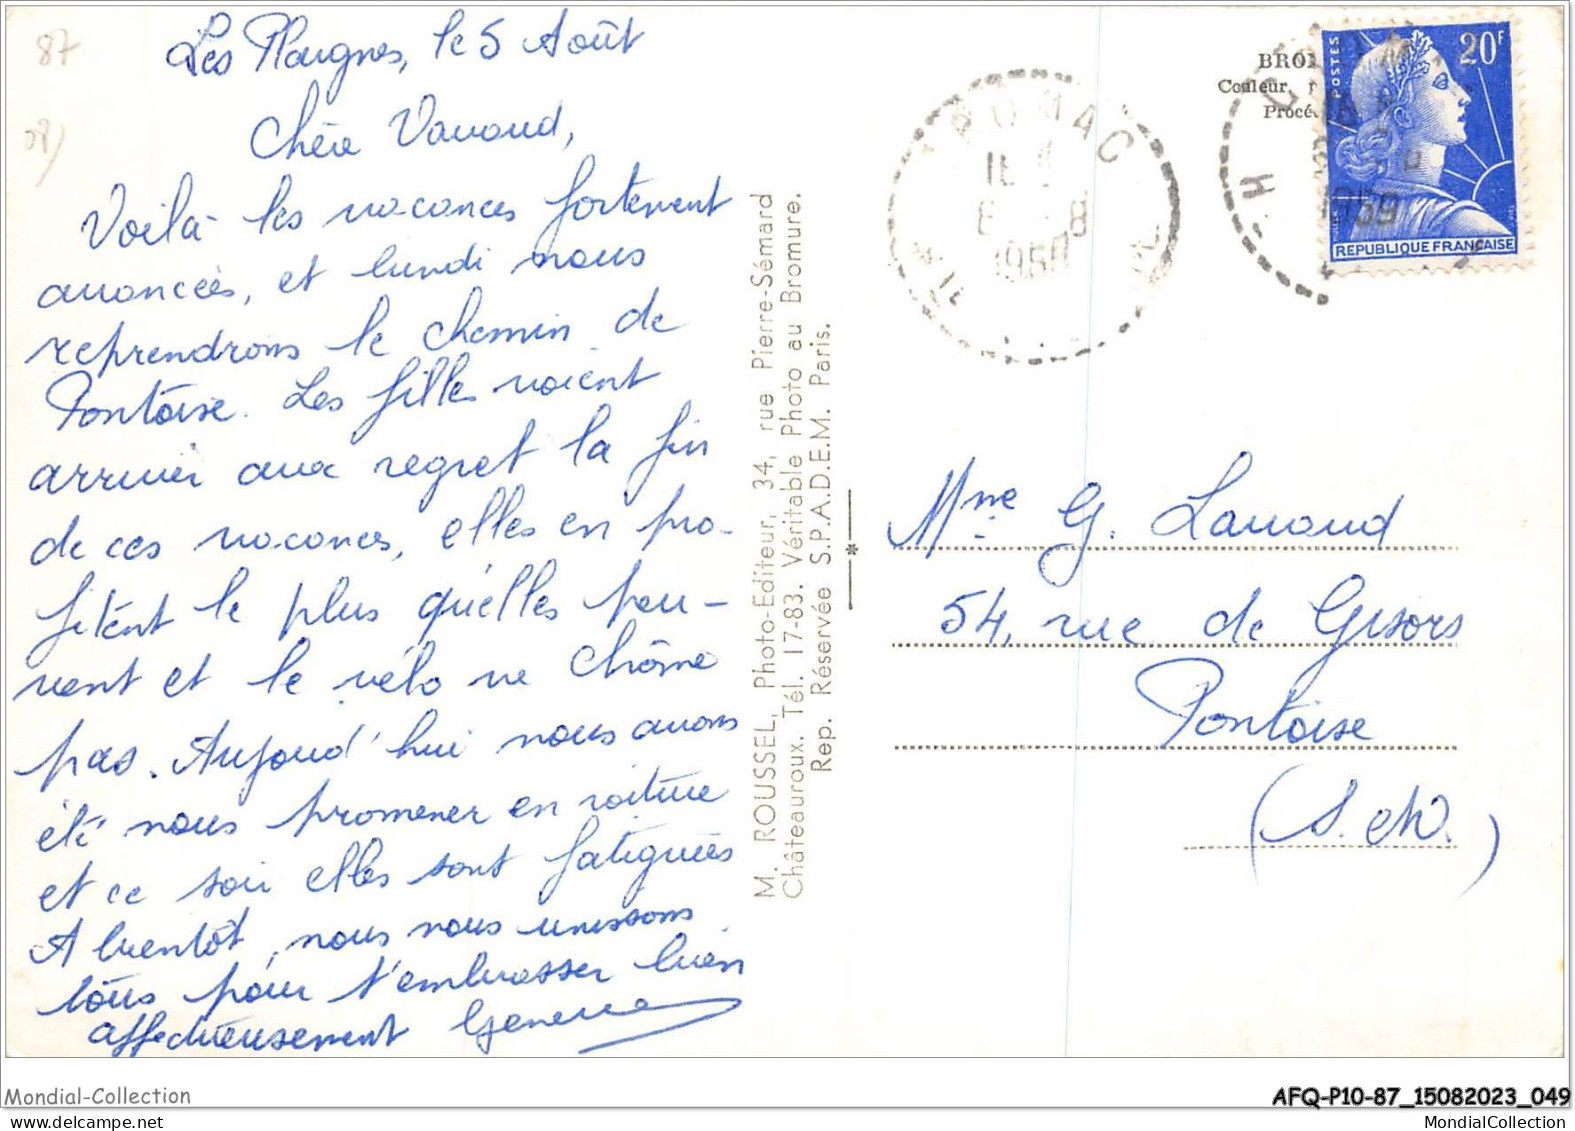 87
Les Plaignes, le 5 Août
Chère Vanoud,
Voilà les vacances fortement
avancées, et lundi nous
reprendrons le chemin de
Pontoise. Les filles voient
arriver avec regret la fin
de ces vacances, elles en pro-
fitent le plus qu'elles peu-
vent et le vélo ne chôme
pas. Aujourd'hui nous avons
été nous promener en voiture
et ce soir elles sont fatiguées
A bientôt, nous nous unissons
tous pour t'embrasser bien
affectueusement
M. ROUSSEL, Photo-Editeur, 34, rue Pierre-Sémard
Châteauroux. Tél. 17-83. Véritable Photo au Bromure.
Rep. Réservée S.P.A.D.E.M. Paris.
Couleur
POSTES
20F
REPUBLIQUE FRANÇAISE
1959
Mme G. Lanoud
54, rue de Gisors
Pontoise
(S. et O.)
Mondial-Collection
AFQ-P10-87_15082023_049
MondialCollection